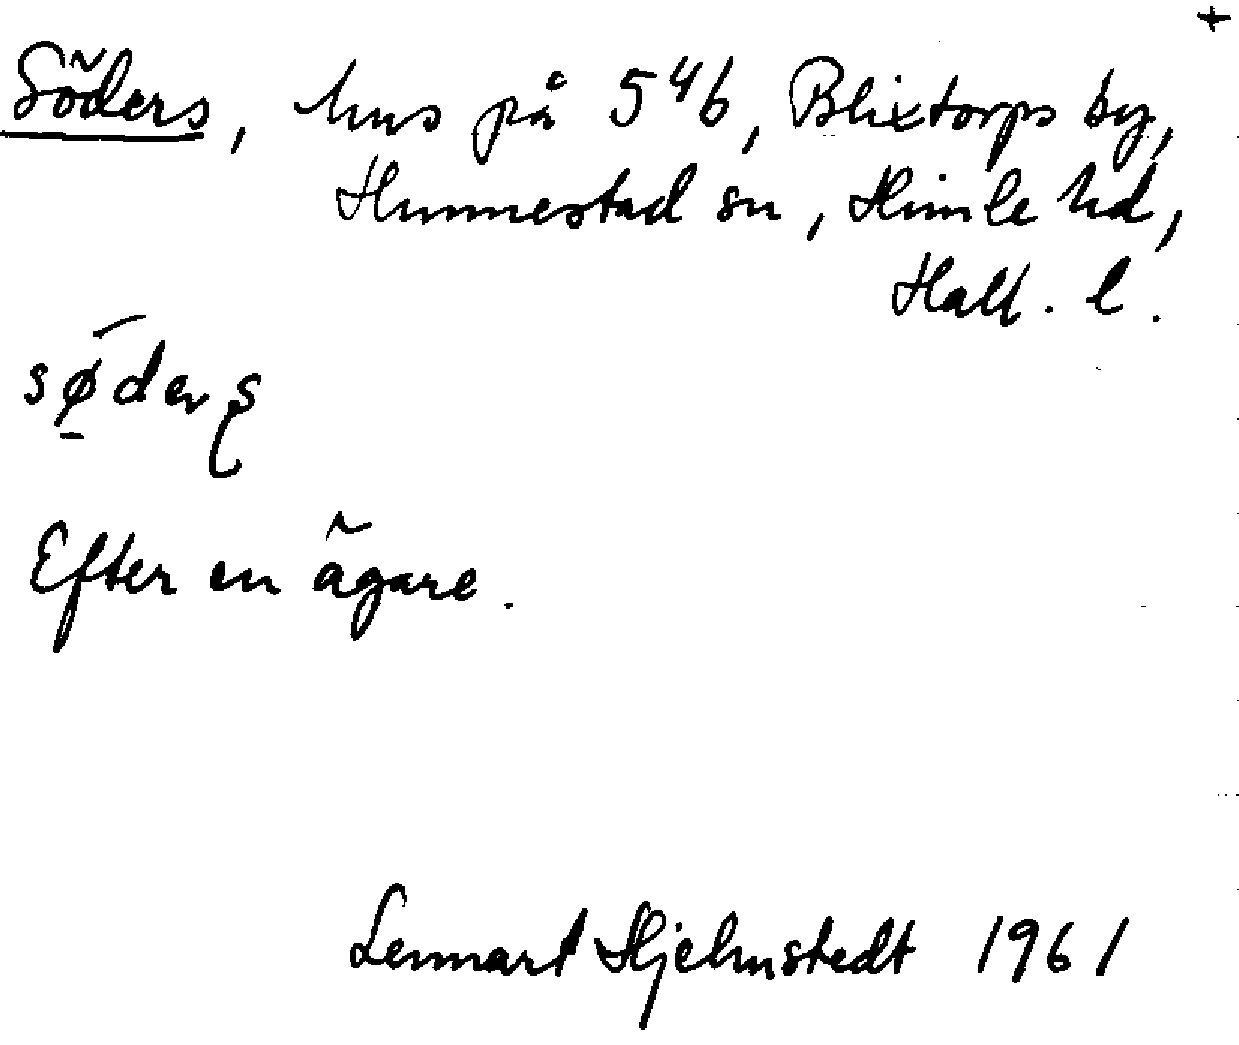 +
Söders, hus på 5⁴b, Blixtorps by,
Hunnestad sn, Himle hd,
Hall. l.
sø̠̄derʂ
Efter en ägare.
Lennart Hjelmstedt 1961